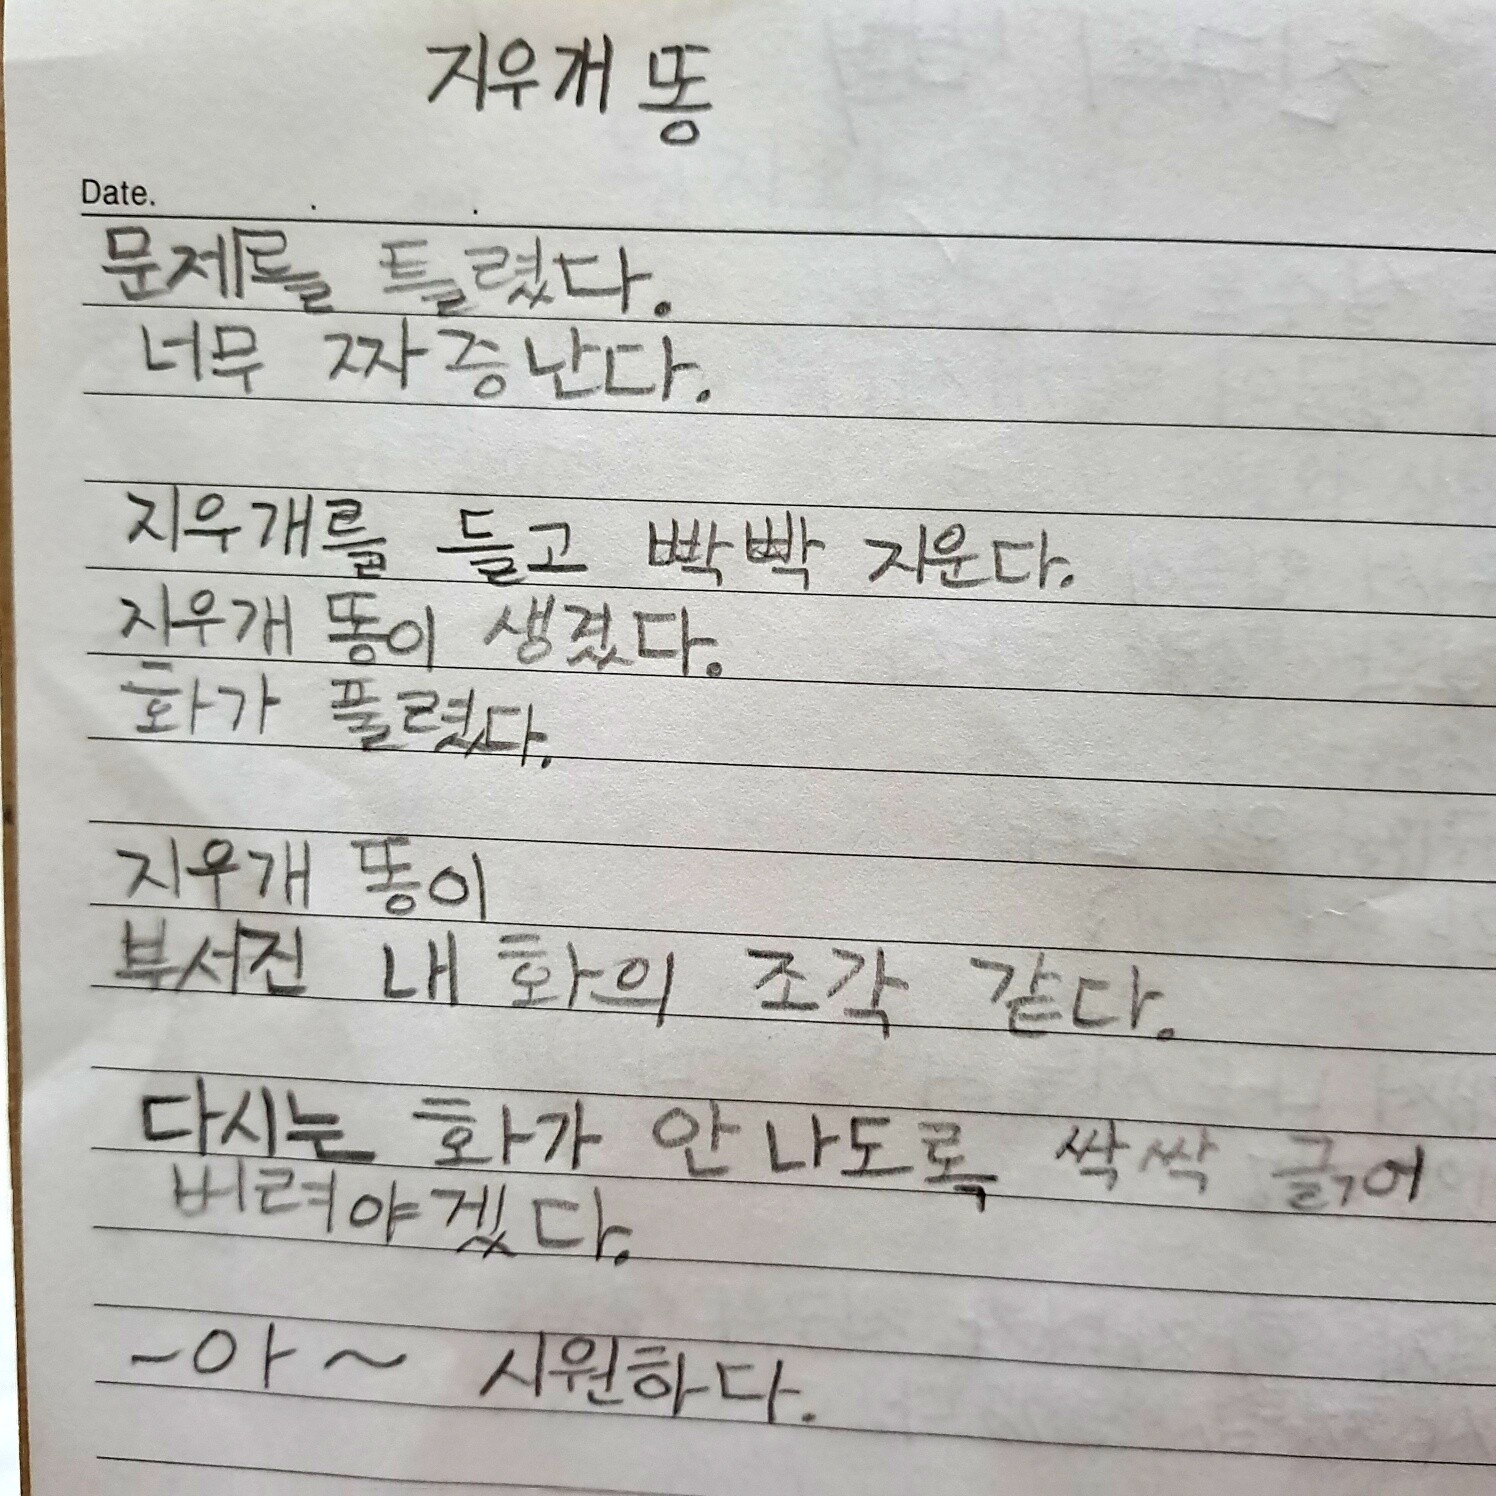 지우개 똥
Date.
문제를 틀렸다.
너무 짜증난다.
지우개를 들고 빡빡 지운다.
지우개 똥이 생겼다.
화가 풀렸다.
지우개 똥이
부서진 내 화의 조각 같다.
다시는 화가 안 나도록 싹싹 긁어
버려야겠다.
~아~ 시원하다.